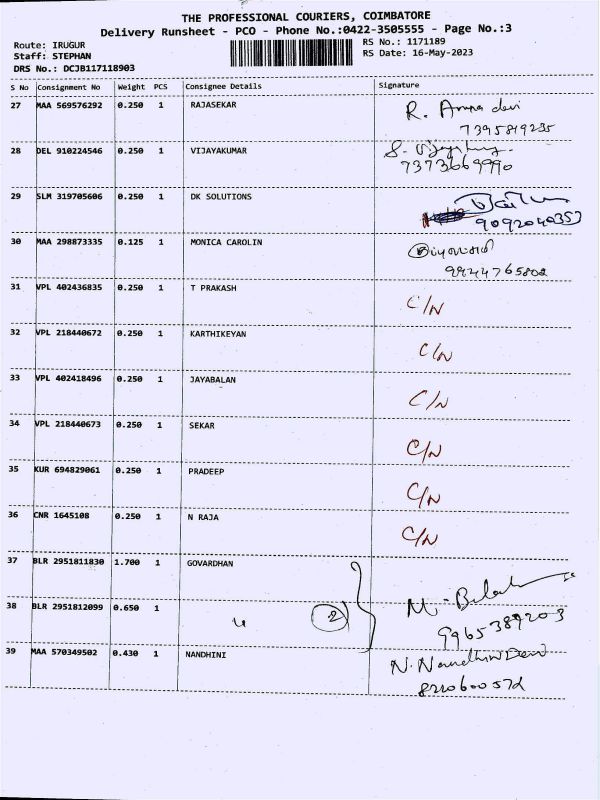 THE PROFESSIONAL COURIERS, COIMBATORE
Delivery Runsheet - PCO - Phone No.:0422-3505555 - Page No.:3
Route: IRUGUR RS No.: 1171189
Staff: STEPHAN RS Date: 16-May-2023
DRS No.: DCJB117118903
S No Consignment No Weight PCS Consignee Details Signature
27 MAA 569576292 0.250 1 RAJASEKAR R. Amma devi
7395849235
28 DEL 910224546 0.250 1 VIJAYAKUMAR
7373669990
29 SLM 319705606 0.250 1 DK SOLUTIONS
9092040353
30 MAA 298873335 0.125 1 MONICA CAROLIN
9944765802
31 VPL 402436835 0.250 1 T PRAKASH C/N
32 VPL 218440672 0.250 1 KARTHIKEYAN C/N
33 VPL 402418496 0.250 1 JAYABALAN C/N
34 VPL 218440673 0.250 1 SEKAR C/N
35 KUR 694829061 0.250 1 PRADEEP C/N
36 CNR 1645108 0.250 1 N RAJA C/N
37 BLR 2951811830 1.700 1 GOVARDHAN
38 BLR 2951812099 0.650 1 " 2
9965389203
39 MAA 570349502 0.430 1 NANDHINI N. Nandhini Devi
8220600572